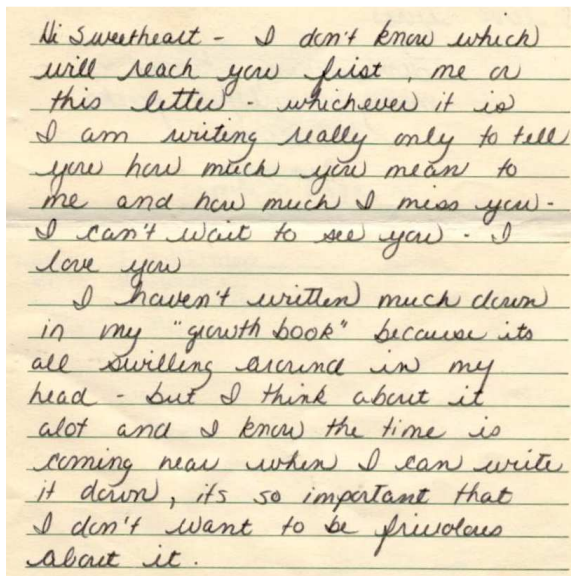 Hi Sweetheart - I don't know which
will reach you first, me or
this letter - whichever it is
I am writing really only to tell
you how much you mean to
me and how much I miss you -
I can't wait to see you - I
love you
I haven't written much down
in my "growth book" because its
all swilling around in my
head - but I think about it
alot and I know the time is
coming near when I can write
it down, its so important that
I don't want to be frivolous
about it.